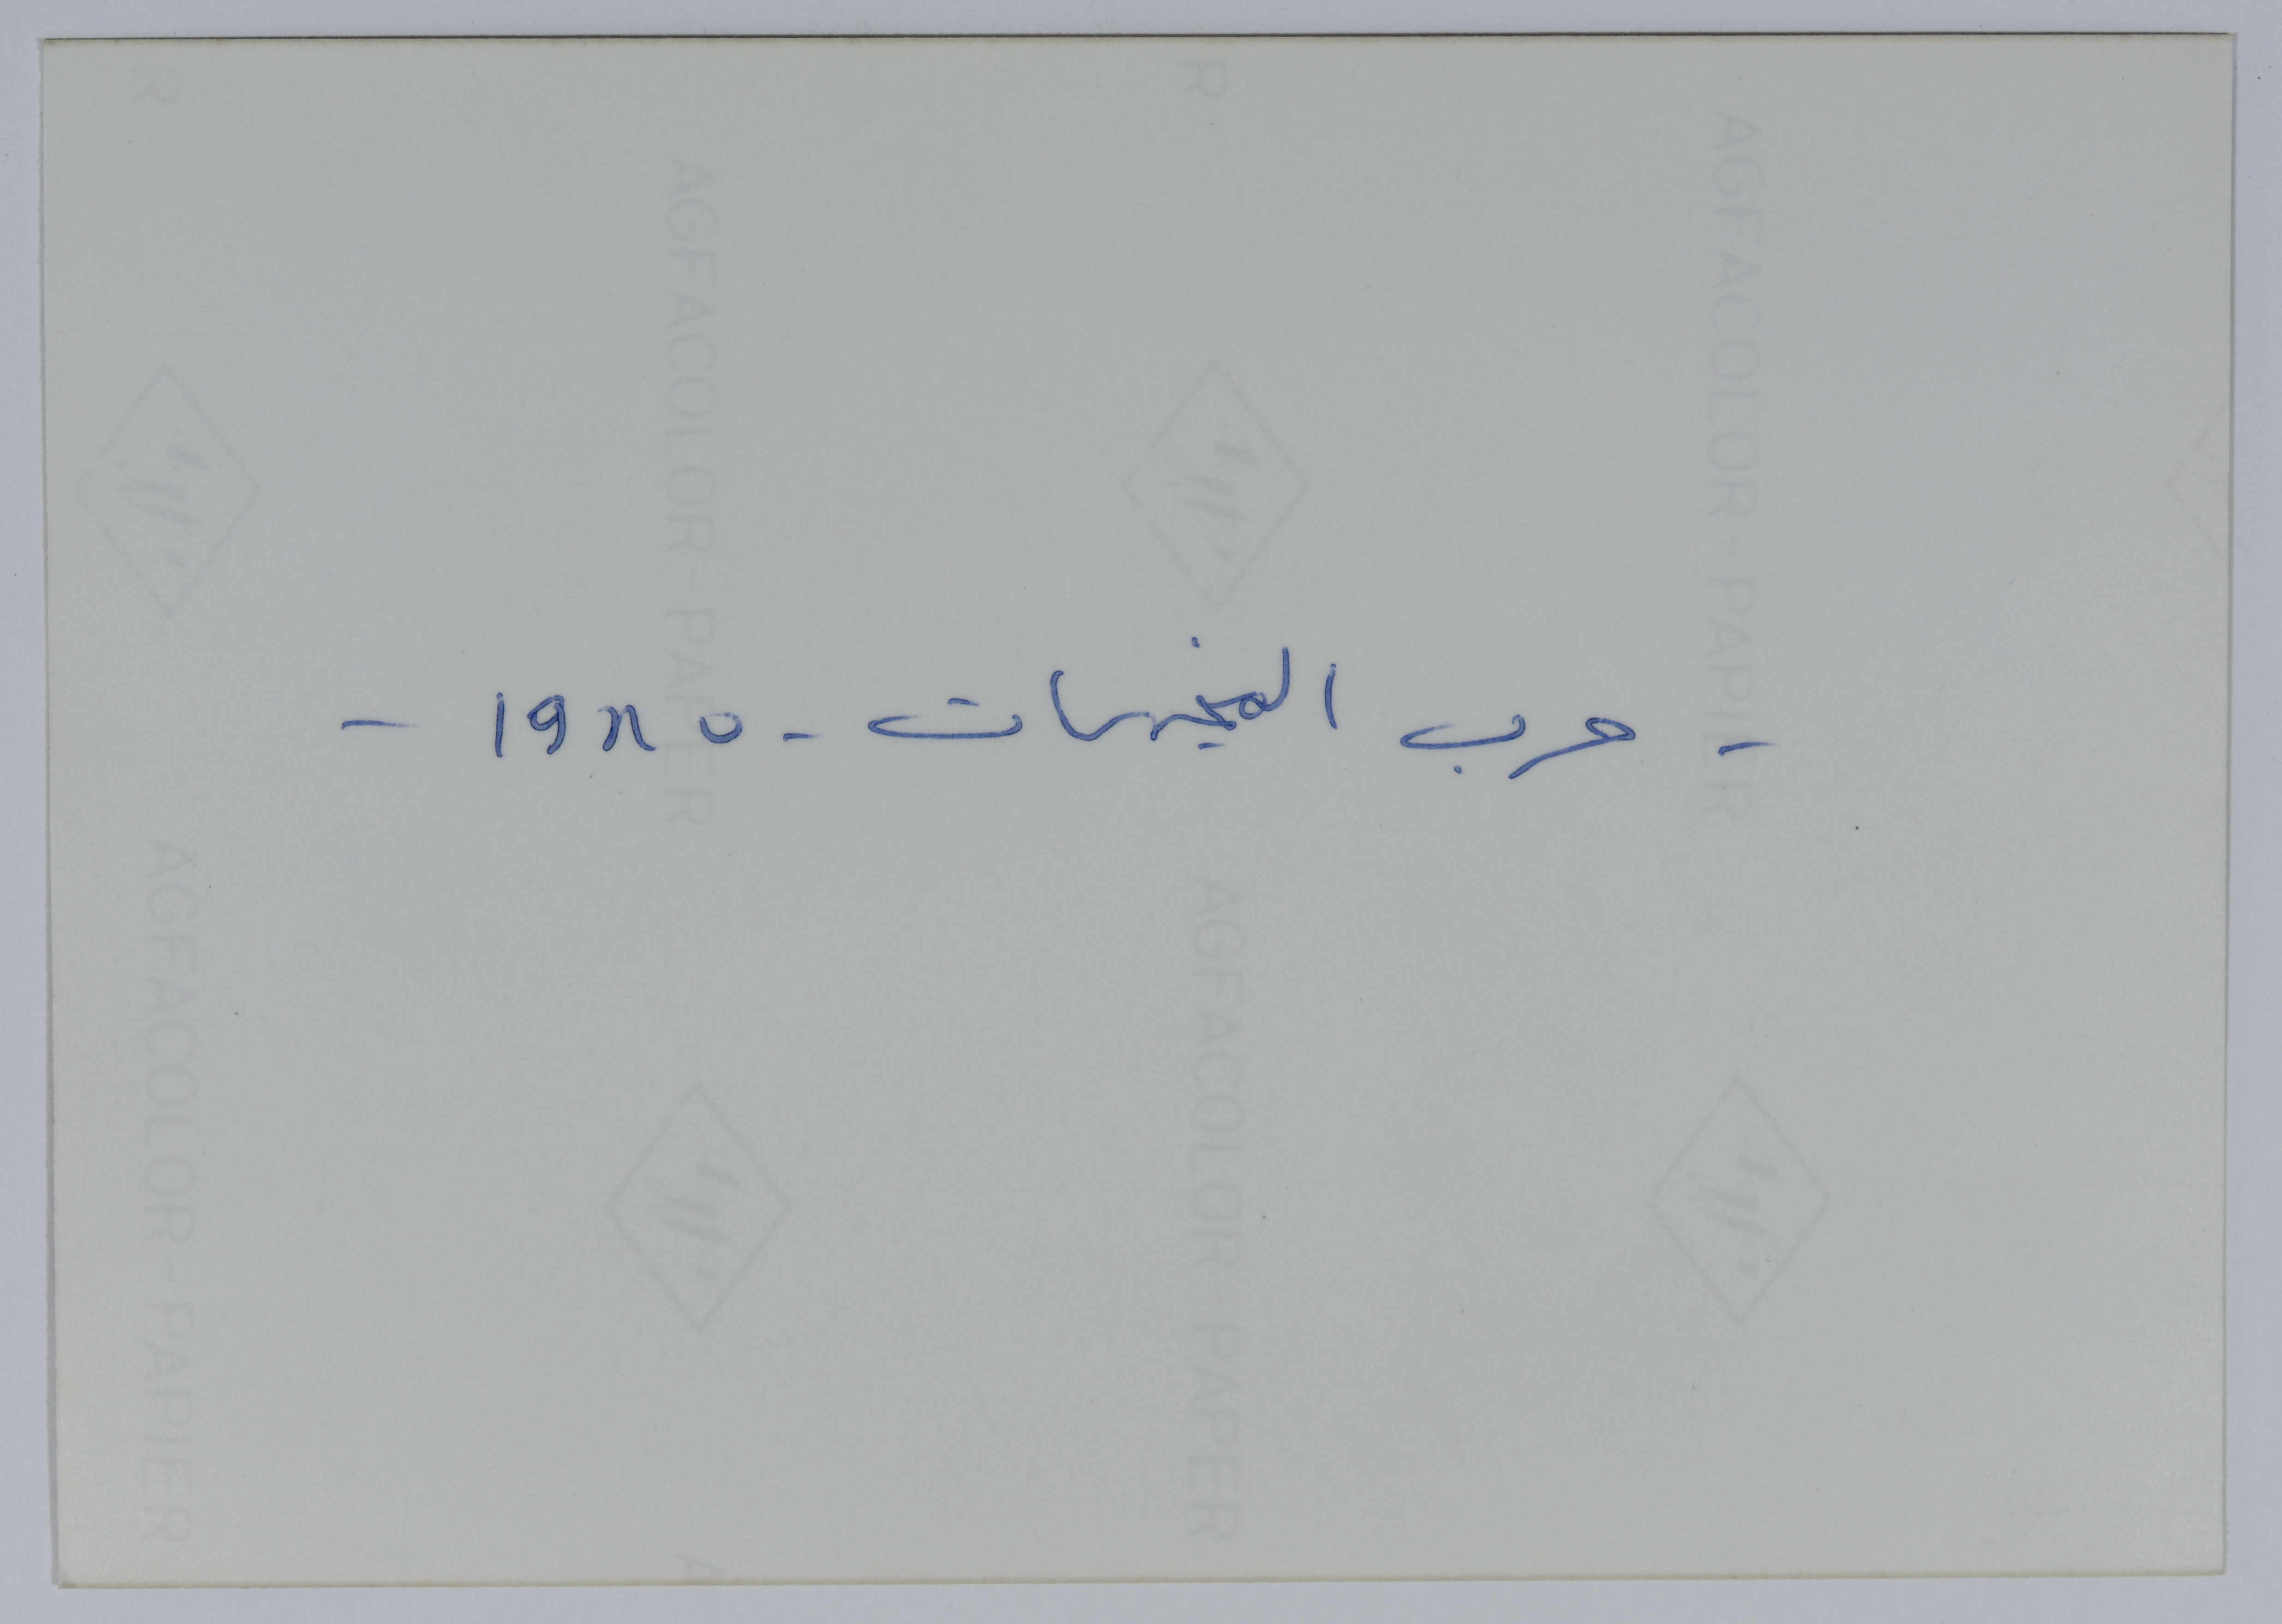 - حرب المخيمات - ١٩٨٥ -
R
AGFACOLOR-PAPIER
AGFACOLOR-PAPER
A
R
AGFACOLOR-PAPER
AGFACOLOR-PAPIER